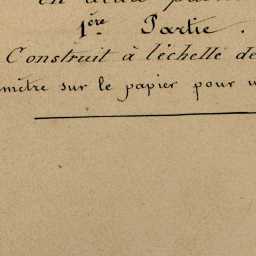 1ère Partie.
Construit à l'échelle de
mètre sur le papier pour